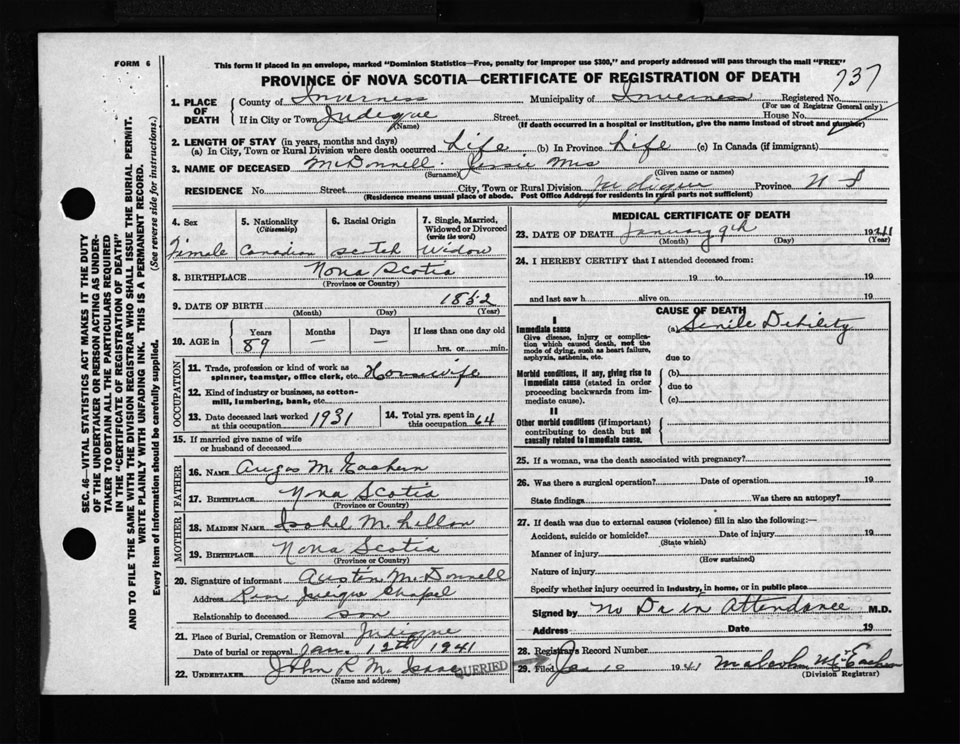 FORM 6
This form if placed in an envelope, marked "Dominion Statistics—Free, penalty for improper use $300," and properly addressed will pass through the mail "FREE"
PROVINCE OF NOVA SCOTIA—CERTIFICATE OF REGISTRATION OF DEATH
737
1. PLACE OF DEATH County of Inverness Municipality of Inverness Registered No.
(For use of Registrar General only)
If in City or Town Judique Street House No.
(Name) (If death occurred in a hospital or institution, give the name instead of street and number)
2. LENGTH OF STAY (in years, months and days)
(a) In City, Town or Rural Division where death occurred Life (b) In Province Life (c) In Canada (if immigrant)
3. NAME OF DECEASED McDonnell Jessie Mrs
(Surname) (Given name or names)
RESIDENCE No. Street City, Town or Rural Division Judique Province N S
(Residence means usual place of abode. Post Office Address for residents in rural parts not sufficient)
4. Sex 5. Nationality (Citizenship) 6. Racial Origin 7. Single, Married, Widowed or Divorced (write the word)
Female Canadian Scotch Widow
8. BIRTHPLACE Nova Scotia
(Province or Country)
9. DATE OF BIRTH 1852
(Month) (Day) (Year)
10. AGE in Years Months Days If less than one day old
89 — — hrs. or min.
OCCUPATION
11. Trade, profession or kind of work as spinner, teamster, office clerk, etc. Housewife
12. Kind of industry or business, as cotton-mill, lumbering, bank, etc.
13. Date deceased last worked at this occupation 1931 14. Total yrs. spent in this occupation 64
15. If married give name of wife or husband of deceased
FATHER
16. NAME Angus McEachern
17. BIRTHPLACE Nova Scotia
(Province or Country)
MOTHER
18. MAIDEN NAME Isabel McLellan
19. BIRTHPLACE Nova Scotia
(Province or Country)
20. Signature of informant Austin McDonnell
Address Judique Chapel
Relationship to deceased son
21. Place of Burial, Cremation or Removal Judique
Date of burial or removal Jan. 12th 1941
22. UNDERTAKER John R McIsaac
(Name and address)
QUERIED
MEDICAL CERTIFICATE OF DEATH
23. DATE OF DEATH January 9th 1941
(Month) (Day) (Year)
24. I HEREBY CERTIFY that I attended deceased from:
19 to 19
and last saw h alive on 19
CAUSE OF DEATH
I
Immediate cause (a) Senile Debility
Give disease, injury or complication which caused death, not the mode of dying, such as heart failure, asphyxia, asthenia, etc.
due to
Morbid conditions, if any, giving rise to immediate cause (stated in order proceeding backwards from immediate cause).
(b)
due to
(c)
II
Other morbid conditions (if important) contributing to death but not causally related to immediate cause.
25. If a woman, was the death associated with pregnancy?
26. Was there a surgical operation? Date of operation 19
State findings Was there an autopsy?
27. If death was due to external causes (violence) fill in also the following:—
Accident, suicide or homicide? Date of injury 19
(State which)
Manner of injury
(How sustained)
Nature of injury
Specify whether injury occurred in industry, in home, or in public place
Signed by No Dr in Attendance M.D.
Address Date 19
28. Registrar's Record Number
29. Filed Jan 10 1941 Malcolm McEachern
(Division Registrar)
SEC. 46—VITAL STATISTICS ACT MAKES IT THE DUTY
OF THE UNDERTAKER OR PERSON ACTING AS UNDER-
TAKER TO OBTAIN ALL THE PARTICULARS REQUIRED
IN THE "CERTIFICATE OF REGISTRATION OF DEATH"
AND TO FILE THE SAME WITH THE DIVISION REGISTRAR WHO SHALL ISSUE THE BURIAL PERMIT.
WRITE PLAINLY WITH UNFADING INK. THIS IS A PERMANENT RECORD.
Every item of information should be carefully supplied. (See reverse side for instructions.)